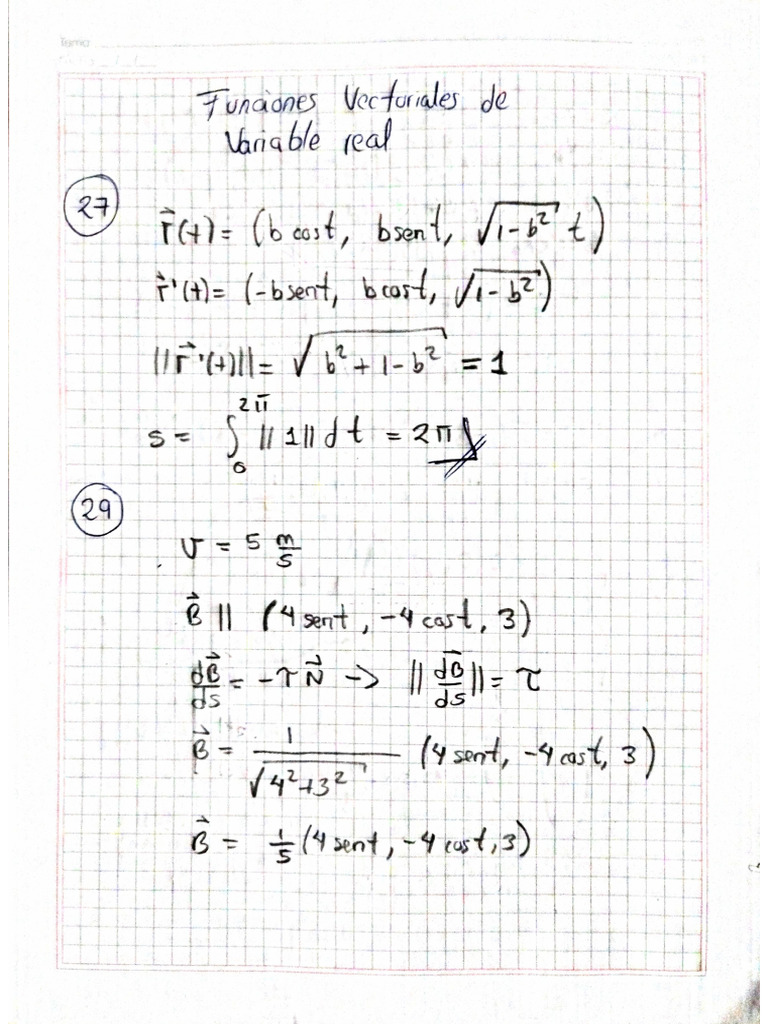 Tema
Funciones Vectoriales de
Variable real
27
r⃗(t) = (b cost, b sent, √(1-b²) t)
r⃗'(t) = (-b sent, b cost, √(1-b²))
||r⃗'(t)|| = √(b² + 1 - b²) = 1
s = ∫₀^{2π} ||1|| dt = 2π
29
v = 5 m/s
B⃗ || (4 sent, -4 cost, 3)
dB⃗/ds = -τ N⃗ -> ||dB⃗/ds|| = τ
B⃗ = 1/√(4²+3²) (4 sent, -4 cost, 3)
B⃗ = 1/5 (4 sent, -4 cost, 3)